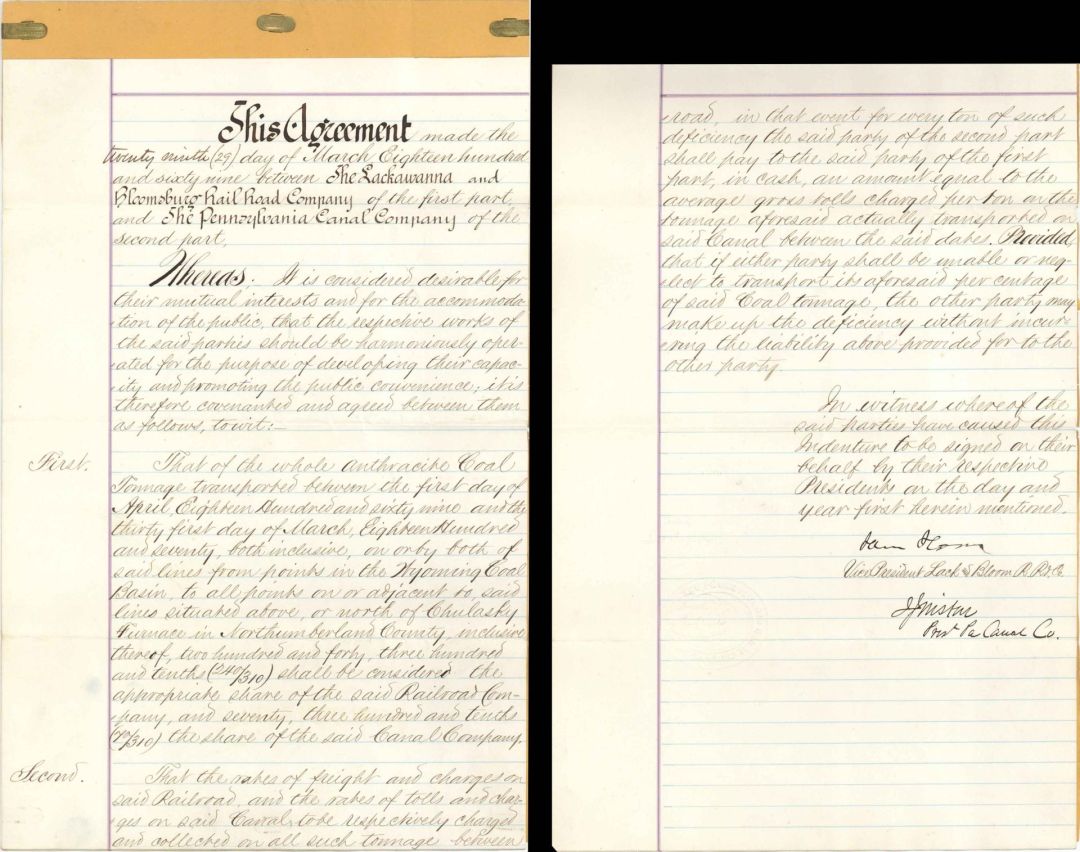 This Agreement made the
twenty ninth (29) day of March Eighteen hundred
and sixty nine between The Lackawanna and
Bloomsburg Rail Road Company of the first part,
and The Pennsylvania Canal Company of the
second part,
Whereas. It is considered desirable for
their mutual interests and for the accommoda-
tion of the public, that the respective works of
the said parties should be harmoniously oper-
ated for the purpose of developing their capac-
ity and promoting the public convenience; it is
therefore covenanted and agreed between them
as follows, to wit:—
First.
That of the whole Anthracite Coal
Tonnage transported between the first day of
April, Eighteen Hundred and sixty nine and the
thirty first day of March, Eighteen Hundred
and seventy, both inclusive, on or by both of
said lines from points in the Wyoming Coal
Basin, to all points on or adjacent to, said
lines situated above, or north of Chulasky
Furnace in Northumberland County, inclusive
thereof, two hundred and forty, three hundred
and tenths (240/310) shall be considered the
appropriate share of the said Railroad Com-
pany, and seventy, three hundred and tenths
(70/310) the share of the said Canal Company.
Second.
That the rates of freight and charges on
said Railroad, and the rates of tolls and char-
ges on said Canal, to be respectively charged
and collected on all such tonnage between
road, in that event for every ton of such
deficiency the said party of the second part
shall pay to the said party of the first
part, in cash, an amount equal to the
average gross tolls charged per ton on the
tonnage aforesaid actually transported on
said Canal between the said dates. Provided,
that if either party shall be unable or neg-
lect to transport its aforesaid per centage
of said Coal tonnage, the other party may
make up the deficiency without incur-
ring the liability above provided for to the
other party.
In witness whereof the
said parties have caused this
Indenture to be signed on their
behalf by their respective
Presidents on the day and
year first herein mentioned.
Vice President Lack & Bloom R. Rd. Co
J J Wistar
Prest Pa Canal Co.